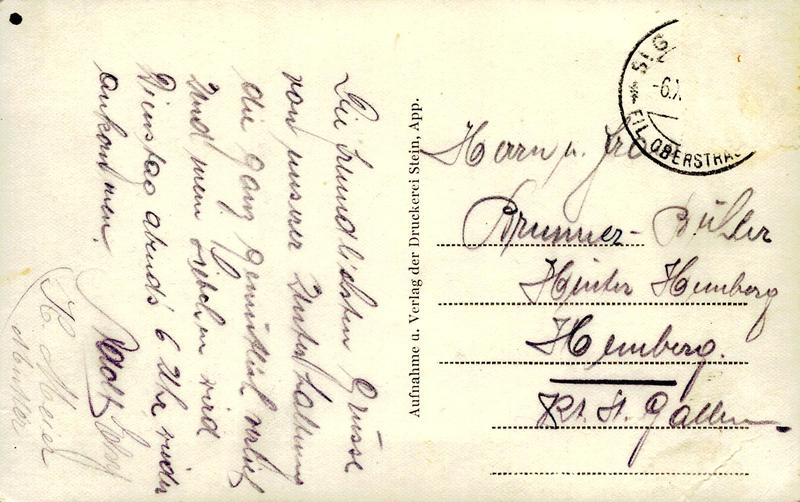 Die freundlichsten Grüsse
von unserer Unterhaltung
die ganz gemütlich verlief
Und mein Liebchen wird
Dienstag abends 6 Uhr wieder
ankommen.
Meier
Aufnahme u. Verlag der Druckerei Stein, App.
Herrn u. Fr
Brunner-Bühler
Hinter Hemberg
Hemberg.
Kt. St. Gallen
ST. G
-6.X
FIL. OBERSTRA